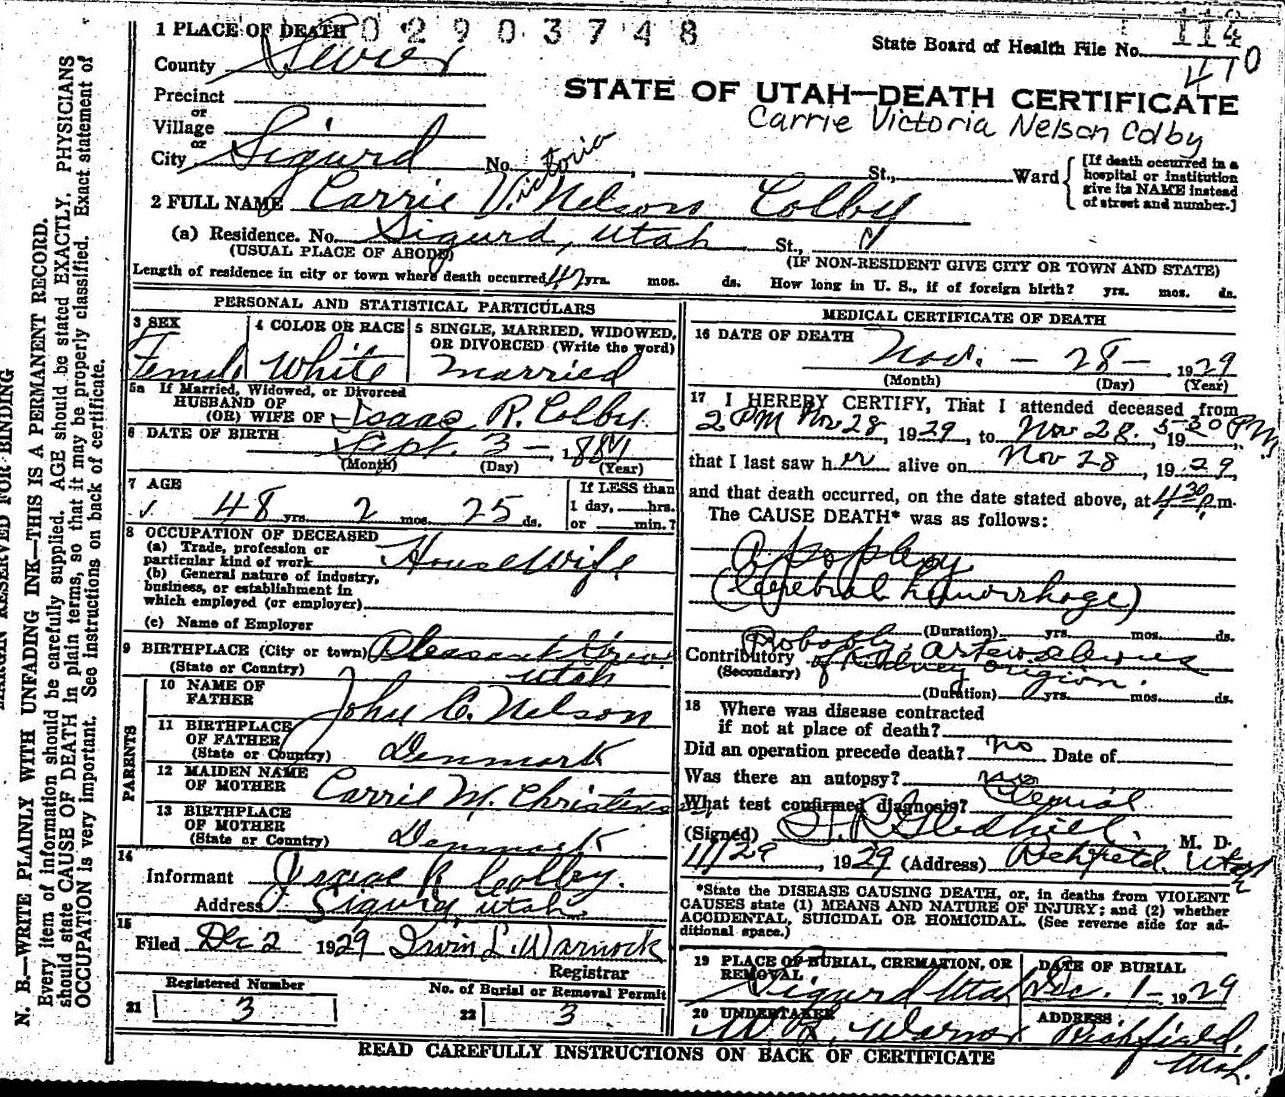 1 PLACE OF DEATH 02903748
State Board of Health File No. 114
410
County Sevier
STATE OF UTAH—DEATH CERTIFICATE
Precinct
or
Carrie Victoria Nelson Colby
Village
or
City Sigurd No. St., Ward
[If death occurred in a hospital or institution give its NAME instead of street and number.]
2 FULL NAME Carrie Victoria Nelson Colby
(a) Residence. No. Sigurd, Utah St.,
(USUAL PLACE OF ABODE) (IF NON-RESIDENT GIVE CITY OR TOWN AND STATE)
Length of residence in city or town where death occurred 47 yrs. mos. ds. How long in U. S., if of foreign birth? yrs. mos. ds.
PERSONAL AND STATISTICAL PARTICULARS
3 SEX
Female
4 COLOR OR RACE
White
5 SINGLE, MARRIED, WIDOWED, OR DIVORCED (Write the word)
Married
5a If Married, Widowed, or Divorced
HUSBAND OF
(OR) WIFE OF Isaac R. Colby
6 DATE OF BIRTH Sept. 3 - 1881
(Month) (Day) (Year)
7 AGE
48 yrs. 2 mos. 25 ds.
If LESS than
1 day, hrs.
or min.?
8 OCCUPATION OF DECEASED
(a) Trade, profession or
particular kind of work House Wife
(b) General nature of industry,
business, or establishment in
which employed (or employer)
(c) Name of Employer
9 BIRTHPLACE (City or town) Pleasant Grove
(State or Country) Utah
PARENTS
10 NAME OF
FATHER John C. Nelson
11 BIRTHPLACE
OF FATHER
(State or Country) Denmark
12 MAIDEN NAME
OF MOTHER Carrie M. Christensen
13 BIRTHPLACE
OF MOTHER
(State or Country) Denmark
14
Informant Isaac R Colby.
Address Sigurd, Utah.
15
Filed Dec 2 1929 Irwin L. Warnock
Registrar
Registered Number
21 3
No. of Burial or Removal Permit
22 3
MEDICAL CERTIFICATE OF DEATH
16 DATE OF DEATH
Nov. - 28 - 1929
(Month) (Day) (Year)
17 I HEREBY CERTIFY, That I attended deceased from
2 PM Nov 28, 1929, to Nov 28. 5-30 PM, 19
that I last saw her alive on Nov 28, 1929,
and that death occurred, on the date stated above, at 4 30 p.m.
The CAUSE DEATH* was as follows:
Apoplexy
(Cerebral hemorrhage)
(Duration) yrs. mos. ds.
Contributory Probably Arterio
(Secondary) of Kidney origion.
(Duration) yrs. mos. ds.
18 Where was disease contracted
if not at place of death?
Did an operation precede death? no Date of
Was there an autopsy? no
What test confirmed diagnosis?
(Signed) Gledhill. M. D.
11/29, 1929 (Address) Richfield. Utah
*State the DISEASE CAUSING DEATH, or, in deaths from VIOLENT
CAUSES state (1) MEANS AND NATURE OF INJURY; and (2) whether
ACCIDENTAL, SUICIDAL OR HOMICIDAL. (See reverse side for ad-
ditional space.)
19 PLACE OF BURIAL, CREMATION, OR
REMOVAL
Sigurd Utah
DATE OF BURIAL
Dec. 1- 1929
20 UNDERTAKER
Warnock
ADDRESS
Richfield,
Utah.
READ CAREFULLY INSTRUCTIONS ON BACK OF CERTIFICATE
MARGIN RESERVED FOR BINDING
N. B.—WRITE PLAINLY WITH UNFADING INK—THIS IS A PERMANENT RECORD.
Every item of information should be carefully supplied. AGE should be stated EXACTLY. PHYSICIANS
should state CAUSE OF DEATH in plain terms, so that it may be properly classified. Exact statement of
OCCUPATION is very important. See instructions on back of certificate.